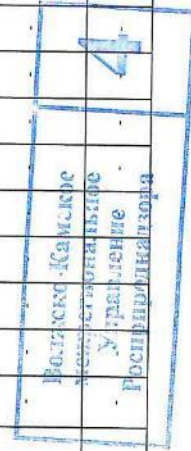 Волжско-Камское
Межрегиональное
Управление
Росприроднадзора
4